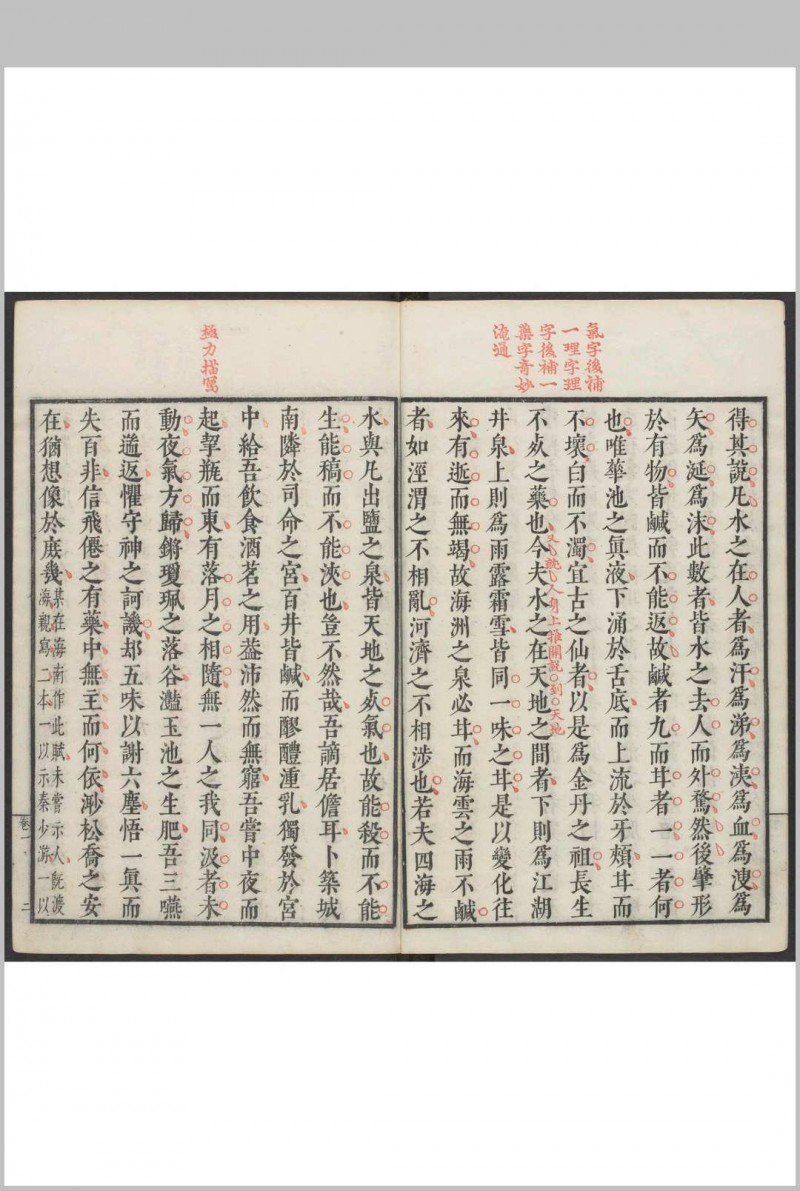 氣字後補
一理字理
字後補一
藥字奇妙
滝通
得其說凡水之在人者爲汗爲涕爲洟爲血爲溲爲
矢爲涎爲沫此數者皆水之去人而外騖然後肇形
於有物皆鹹而不能返故鹹者九而甘者一一者何
也唯華池之眞液下涌於舌底而上流於牙頰甘而
不壞白而不濁宜古之仙者以是爲金丹之祖長生
不死之藥也今夫水之在天地之間者下則爲江湖
又就人身上推開說到天地
井泉上則爲雨露霜雪皆同一味之甘是以變化往
來有逝而無竭故海洲之泉必甘而海雲之雨不鹹
者如涇渭之不相亂河濟之不相涉也若夫四海之
極力描寫
水與凡出鹽之泉皆天地之死氣也故能殺而不能
生能稿而不能浹也豈不然哉吾謫居儋耳卜築城
南隣於司命之宮百井皆鹹而醪醴湩乳獨發於宮
中給吾飲食酒茗之用葢沛然而無窮吾嘗中夜而
起挈瓶而東有落月之相隨無一人之我同汲者未
動夜氣方歸鏘瓊珮之落谷灩玉池之生肥吾三嚥
而遄返懼守神之訶譏却五味以謝六塵悟一眞而
失百非信飛僊之有藥中無主而何依渺松喬之安
在猶想像於庶幾某在海南作此賦未嘗示人旣渡
海親寫二本一以示秦少游一以
卷一
二